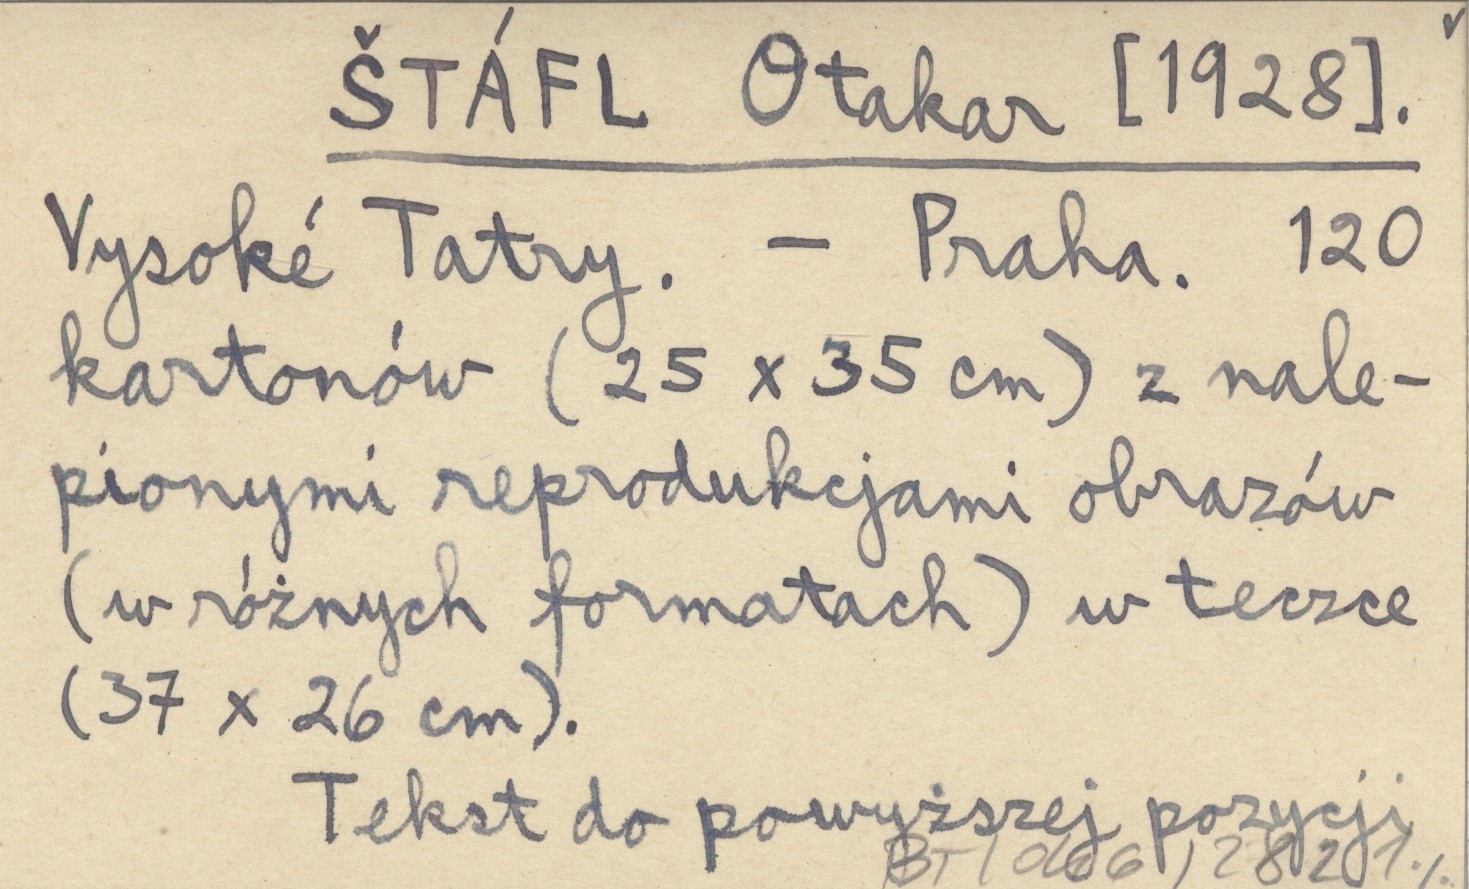 ŠTÁFL Otakar [1928].
Vysoké Tatry. - Praha. 120
kartonów (25 x 35 cm) z nale-
pionymi reprodukcjami obrazów
(w różnych formatach) w teczce
(37 x 26 cm).
Tekst do powyższej pozycji